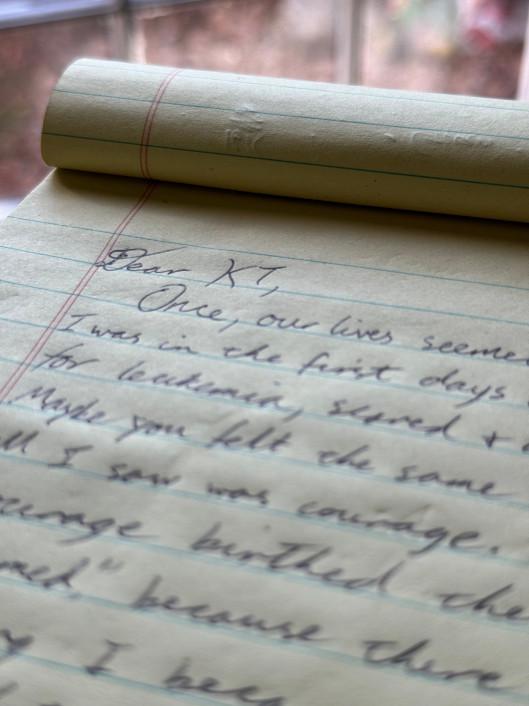 Dear KT,
Once, our lives seemed
I was in the first days
for leukemia, scared +
Maybe you felt the same
all I saw was courage.
courage birthed the
because there
I been